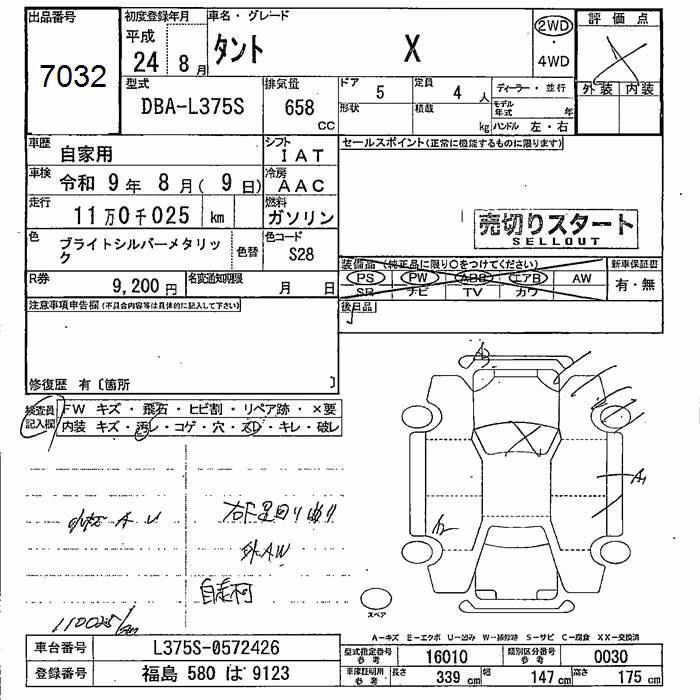 出品番号 7032
初度登録年月 平成 24 8月
車名・グレード タント X
2WD・4WD
評価点
外装 内装
型式 DBA-L375S
排気量 658 cc
ドア 5
形状
定員 4 人
積載 kg
ディーラー・並行
モデル年式 年
ハンドル 左・右
車歴 自家用
シフト IAT
車検 令和 9年 8月( 9日)
冷房 AAC
走行 11万0千025 km
燃料 ガソリン
色 ブライトシルバーメタリック
色替
色コード S28
R券 9,200円
名変通知期限 月 日
セールスポイント(正常に機能するものに限ります)
売切りスタート
SELLOUT
装備品(純正品に限り○をつけてください)
PS PW ABS エアB AW
SR ナビ TV カワ
新車保証書
有・無
後日品
注意事項申告欄(不具合内容等は具体的に記入して下さい)
修復歴 有〔箇所 〕
検査員記入欄
FW キズ・飛石・ヒビ割・リペア跡・×要
内装 キズ・汚レ・コゲ・穴・スレ・キレ・破レ
小キズ A U
外AW
自走可
110025km
A
A1
スペア
A-キズ E-エクボ U-凹み W-補修跡 S-サビ C-腐食 XX-交換済
車台番号 L375S-0572426
登録番号 福島 580 は 9123
型式指定番号 参考 16010
類別区分番号 参考 0030
車庫証明用 参考 長さ 339 cm 幅 147 cm 高さ 175 cm